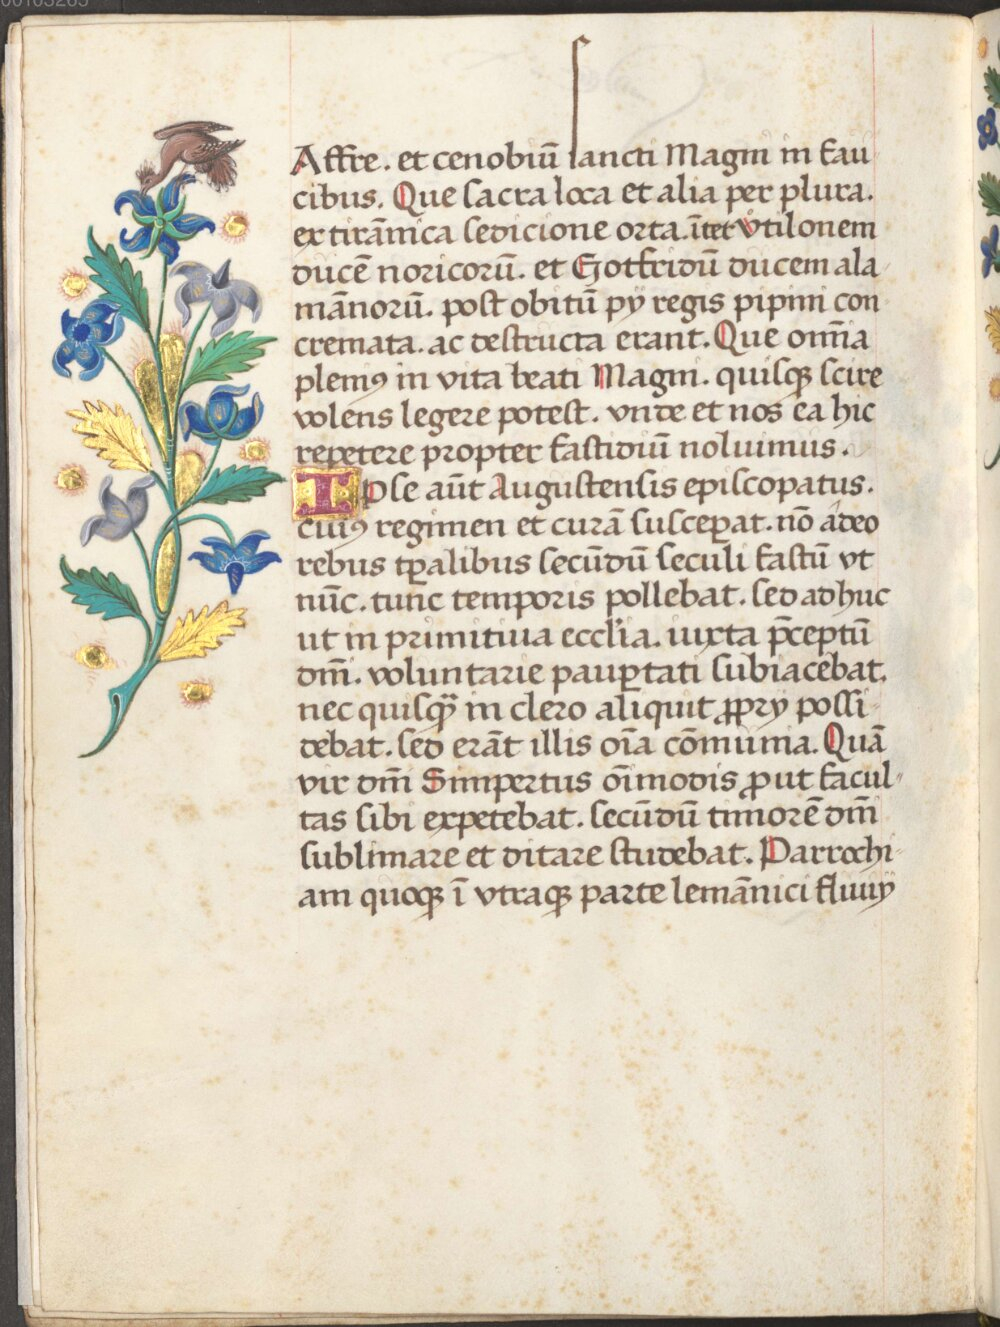 Affre. et cenobiū sancti Magni in fau
cibus. Que sacra loca et alia per plura.
ex tirānica sedicione orta. īter Vtilonem
ducē noricorū. et Gotfridū ducem ala
mānorū. post obitū py regis pipini con
cremata. ac destructa erant. Que om̄ia
pleniꝰ in vita beati Magni. quisqꝫ scire
volens legere potest. vnde et nos ea hic
repetere propter fastidiū noluimus.
Ipse aūt Augustensis episcopatus.
cuiꝰ regimen et curā susceperat. nō adeo
rebus tꝑalibus secūdū seculi fastū vt
nūc. tunc temporis pollebat. sed adhuc
ut in primitiua eccl̄ia. iuxta p̄ceptū
dn̄i. voluntarie pauꝑtati subiacebat.
nec quisqꝫ̄ in clero aliquit ꝓpry possi
debat. sed erāt illis oīa cōmunia. Quā
vir dn̄i Simpertus oīmodis ꝓut facul
tas sibi expetebat. secūdū timorē dn̄i
sublimare et ditare studebat. Parrochi
am quoqꝫ ī vtraqꝫ parte lemānici fluuij